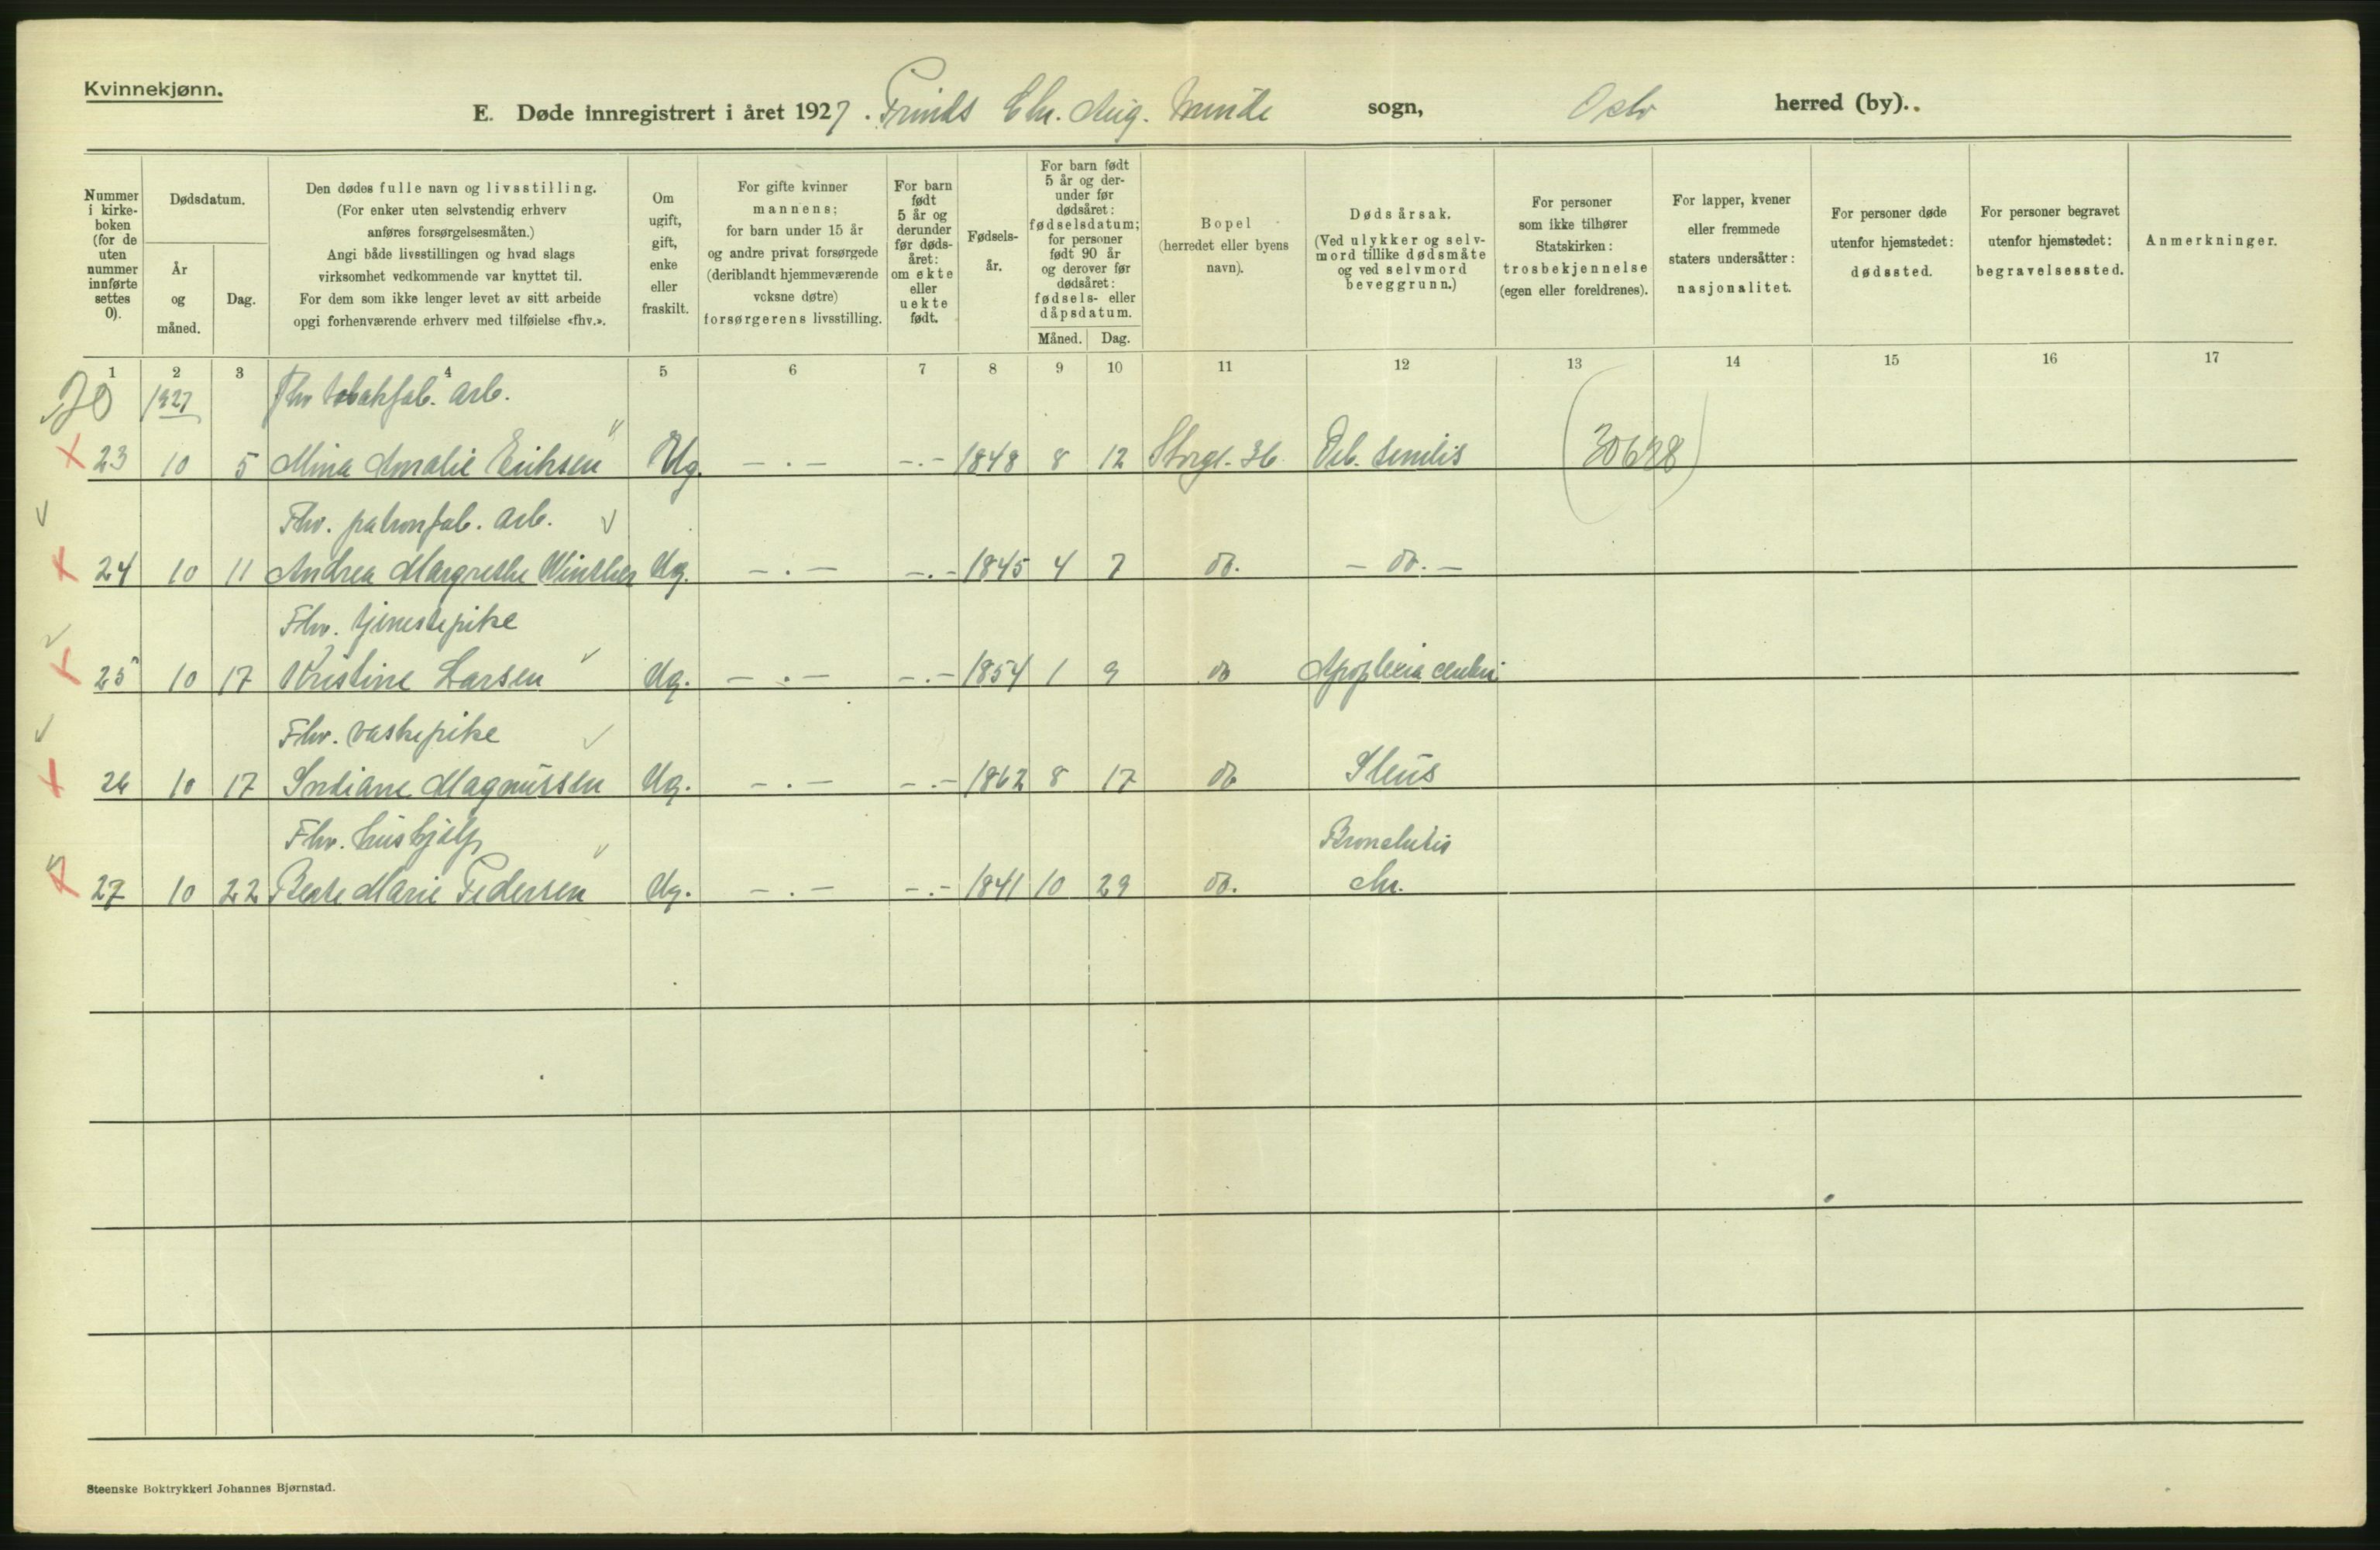 Kvinnekjønn.
E. Døde innregistrert i året 1927. Prinds Chr. Aug. Minde sogn, Oslo herred (by)..
Nummer i kirke- boken (for de uten nummer innførte settes 0).
Dødsdatum.
År og måned.
Dag.
Den dødes fulle navn og livsstilling.
(For enker uten selvstendig erhverv
anføres forsørgelsesmåten.)
Angi både livsstillingen og hvad slags
virksomhet vedkommende var knyttet til.
For dem som ikke lenger levet av sitt arbeide
opgi forhenværende erhverv med tilføielse «fhv.».
Om ugift, gift, enke eller fraskilt.
For gifte kvinner
mannens;
for barn under 15 år
og andre privat forsørgede
(deriblandt hjemmeværende
voksne døtre)
forsørgerens livsstilling.
For barn født 5 år og derunder før døds- året: om ekte eller uekte født.
Fødsels- år.
For barn født 5 år og der- under før dødsåret: fødselsdatum; for personer født 90 år og derover før dødsåret: fødsels- eller dåpsdatum.
Måned. Dag.
Bopel
(herredet eller byens
navn).
Dødsårsak.
(Ved ulykker og selv-
mord tillike dødsmåte
og ved selvmord
beveggrunn.)
For personer
som ikke tilhører
Statskirken:
trosbekjennelse
(egen eller foreldrenes).
For lapper, kvener
eller fremmede
staters undersåtter:
nasjonalitet.
For personer døde
utenfor hjemstedet:
dødssted.
For personer begravet
utenfor hjemstedet:
begravelsessted.
Anmerkninger.
1 2 3 4 5 6 7 8 9 10 11 12 13 14 15 16 17
1927 Fhv tobakfab. arb.
23 10 5 Mina Amalie Eriksen Ug. — . — -.- 1848 8 12 Storgt. 36 Deb. senilis (30688)
Fhv. patronfab. arb.
24 10 11 Andrea Margrethe Winther Ug. — . — -.- 1845 4 7 do. — do. —
Fhv. tjenestepike
25 10 17 Kristine Larsen Ug. — . — -.- 1854 1 9 do Apoplexia cerebri
Fhv. vaskepike
26 10 17 Indiane Magnussen Ug. — . — -.- 1862 8 17 do Ileus
Fhv. hushjelp Bronchitis
27 10 22 Beate Marie Pedersen Ug. — . — -.- 1841 10 29 do. chr.
Steenske Boktrykkeri Johannes Bjørnstad.